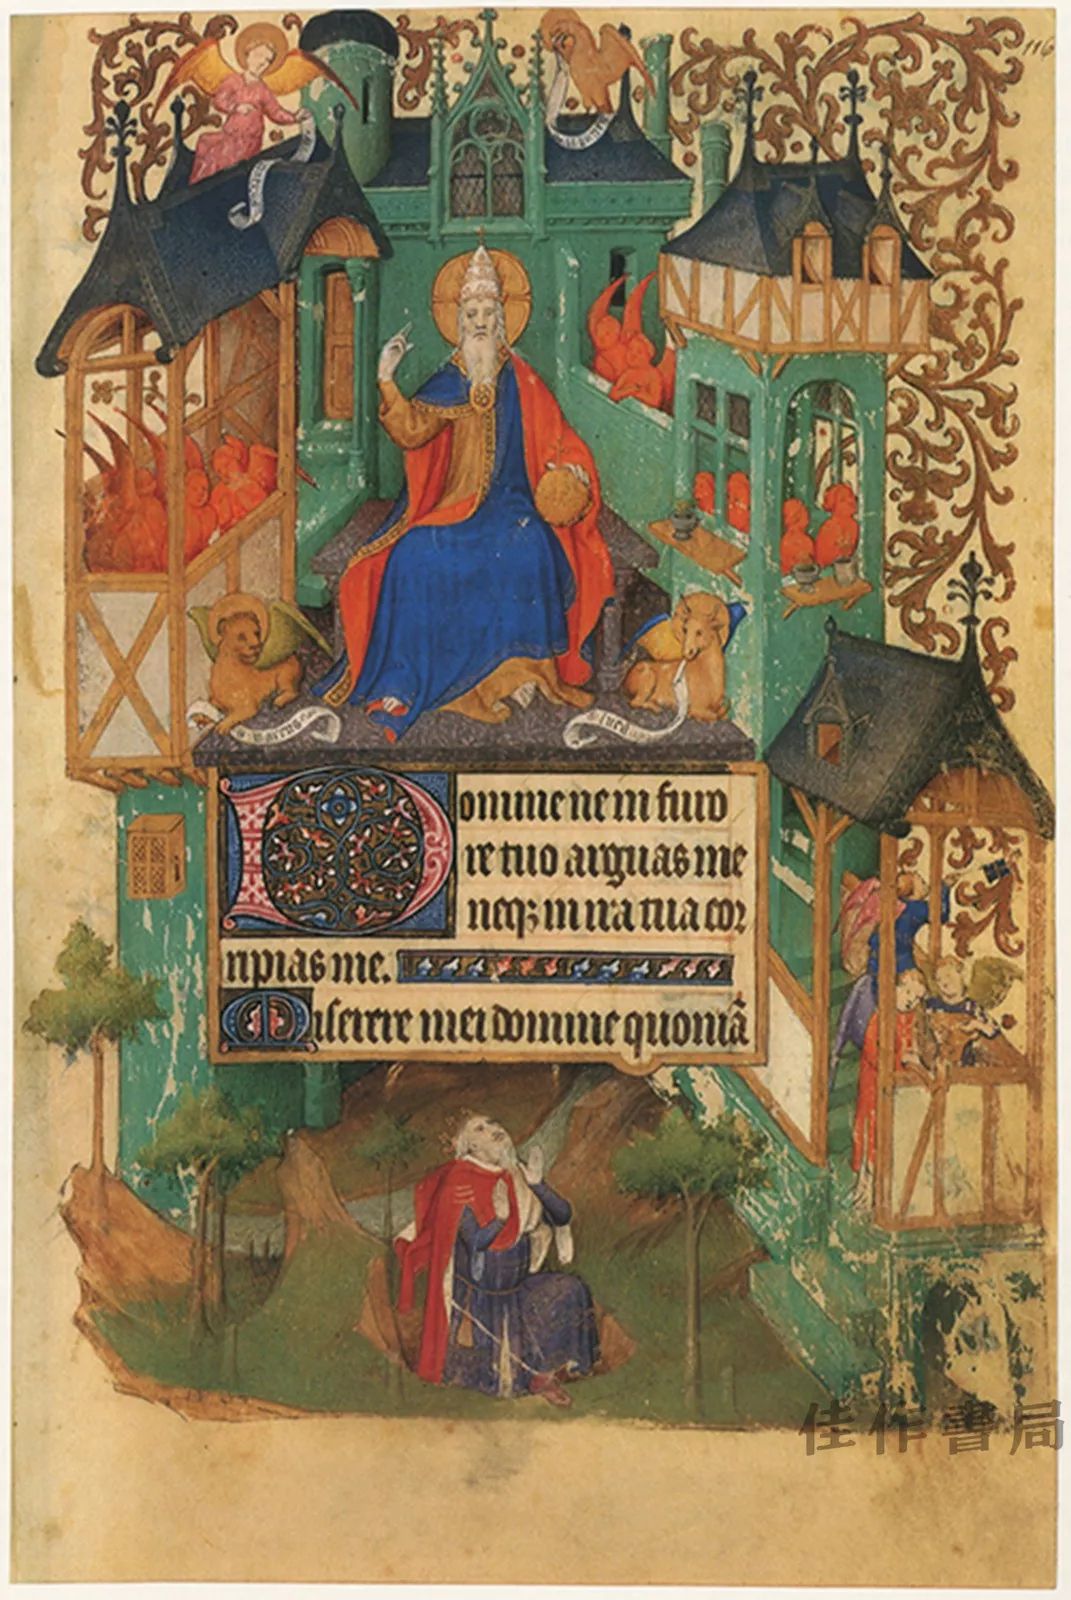 116
marcus
lucas
Domine ne in furo
re tuo arguas me
neqꝫ in ira tua cor
ripias me.
Miserere mei domine quoniā
佳作書局